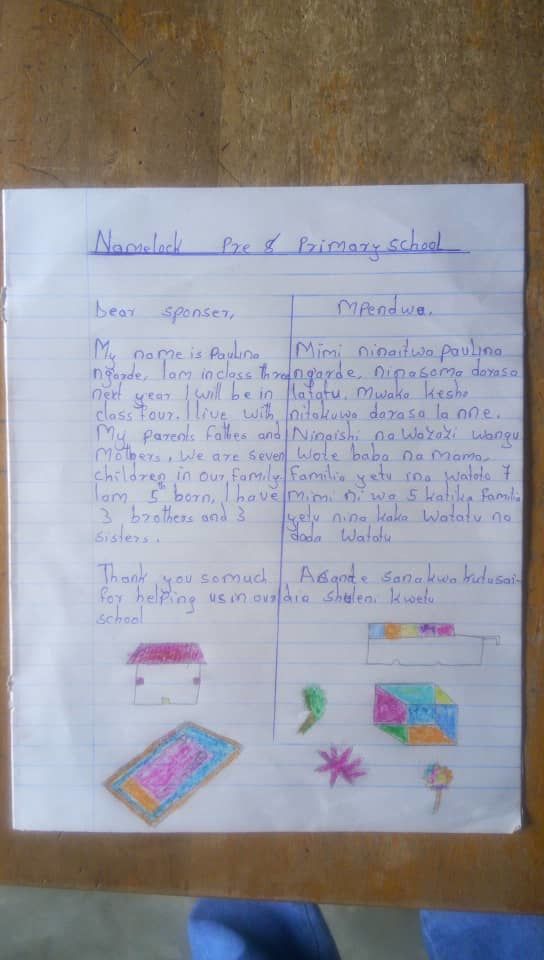 Namelock Pre & Primary school
Dear sponser,
My name is Paulina
ngarde, Iam in class three
next year I will be in
class four. I live with
My parents Father and
Mothers, we are seven
children in our family.
Iam 5th born, I have
3 brothers and 3
sisters.
Thank you somuch
for helping us in our
school
Mpendwa.
Mimi ninaitwa paulina
ngarde, ninasoma darasa
latatu. Mwaka kesho
nitakuwa darasa la nne.
Ninaishi na wazazi wangu
wote baba na mama,
familia yetu ina watoto 7
mimi ni wa 5 katika familia
yetu nina kaka watatu na
dada watatu
Asante sana kwa kutusai-
dia shuleni kwetu